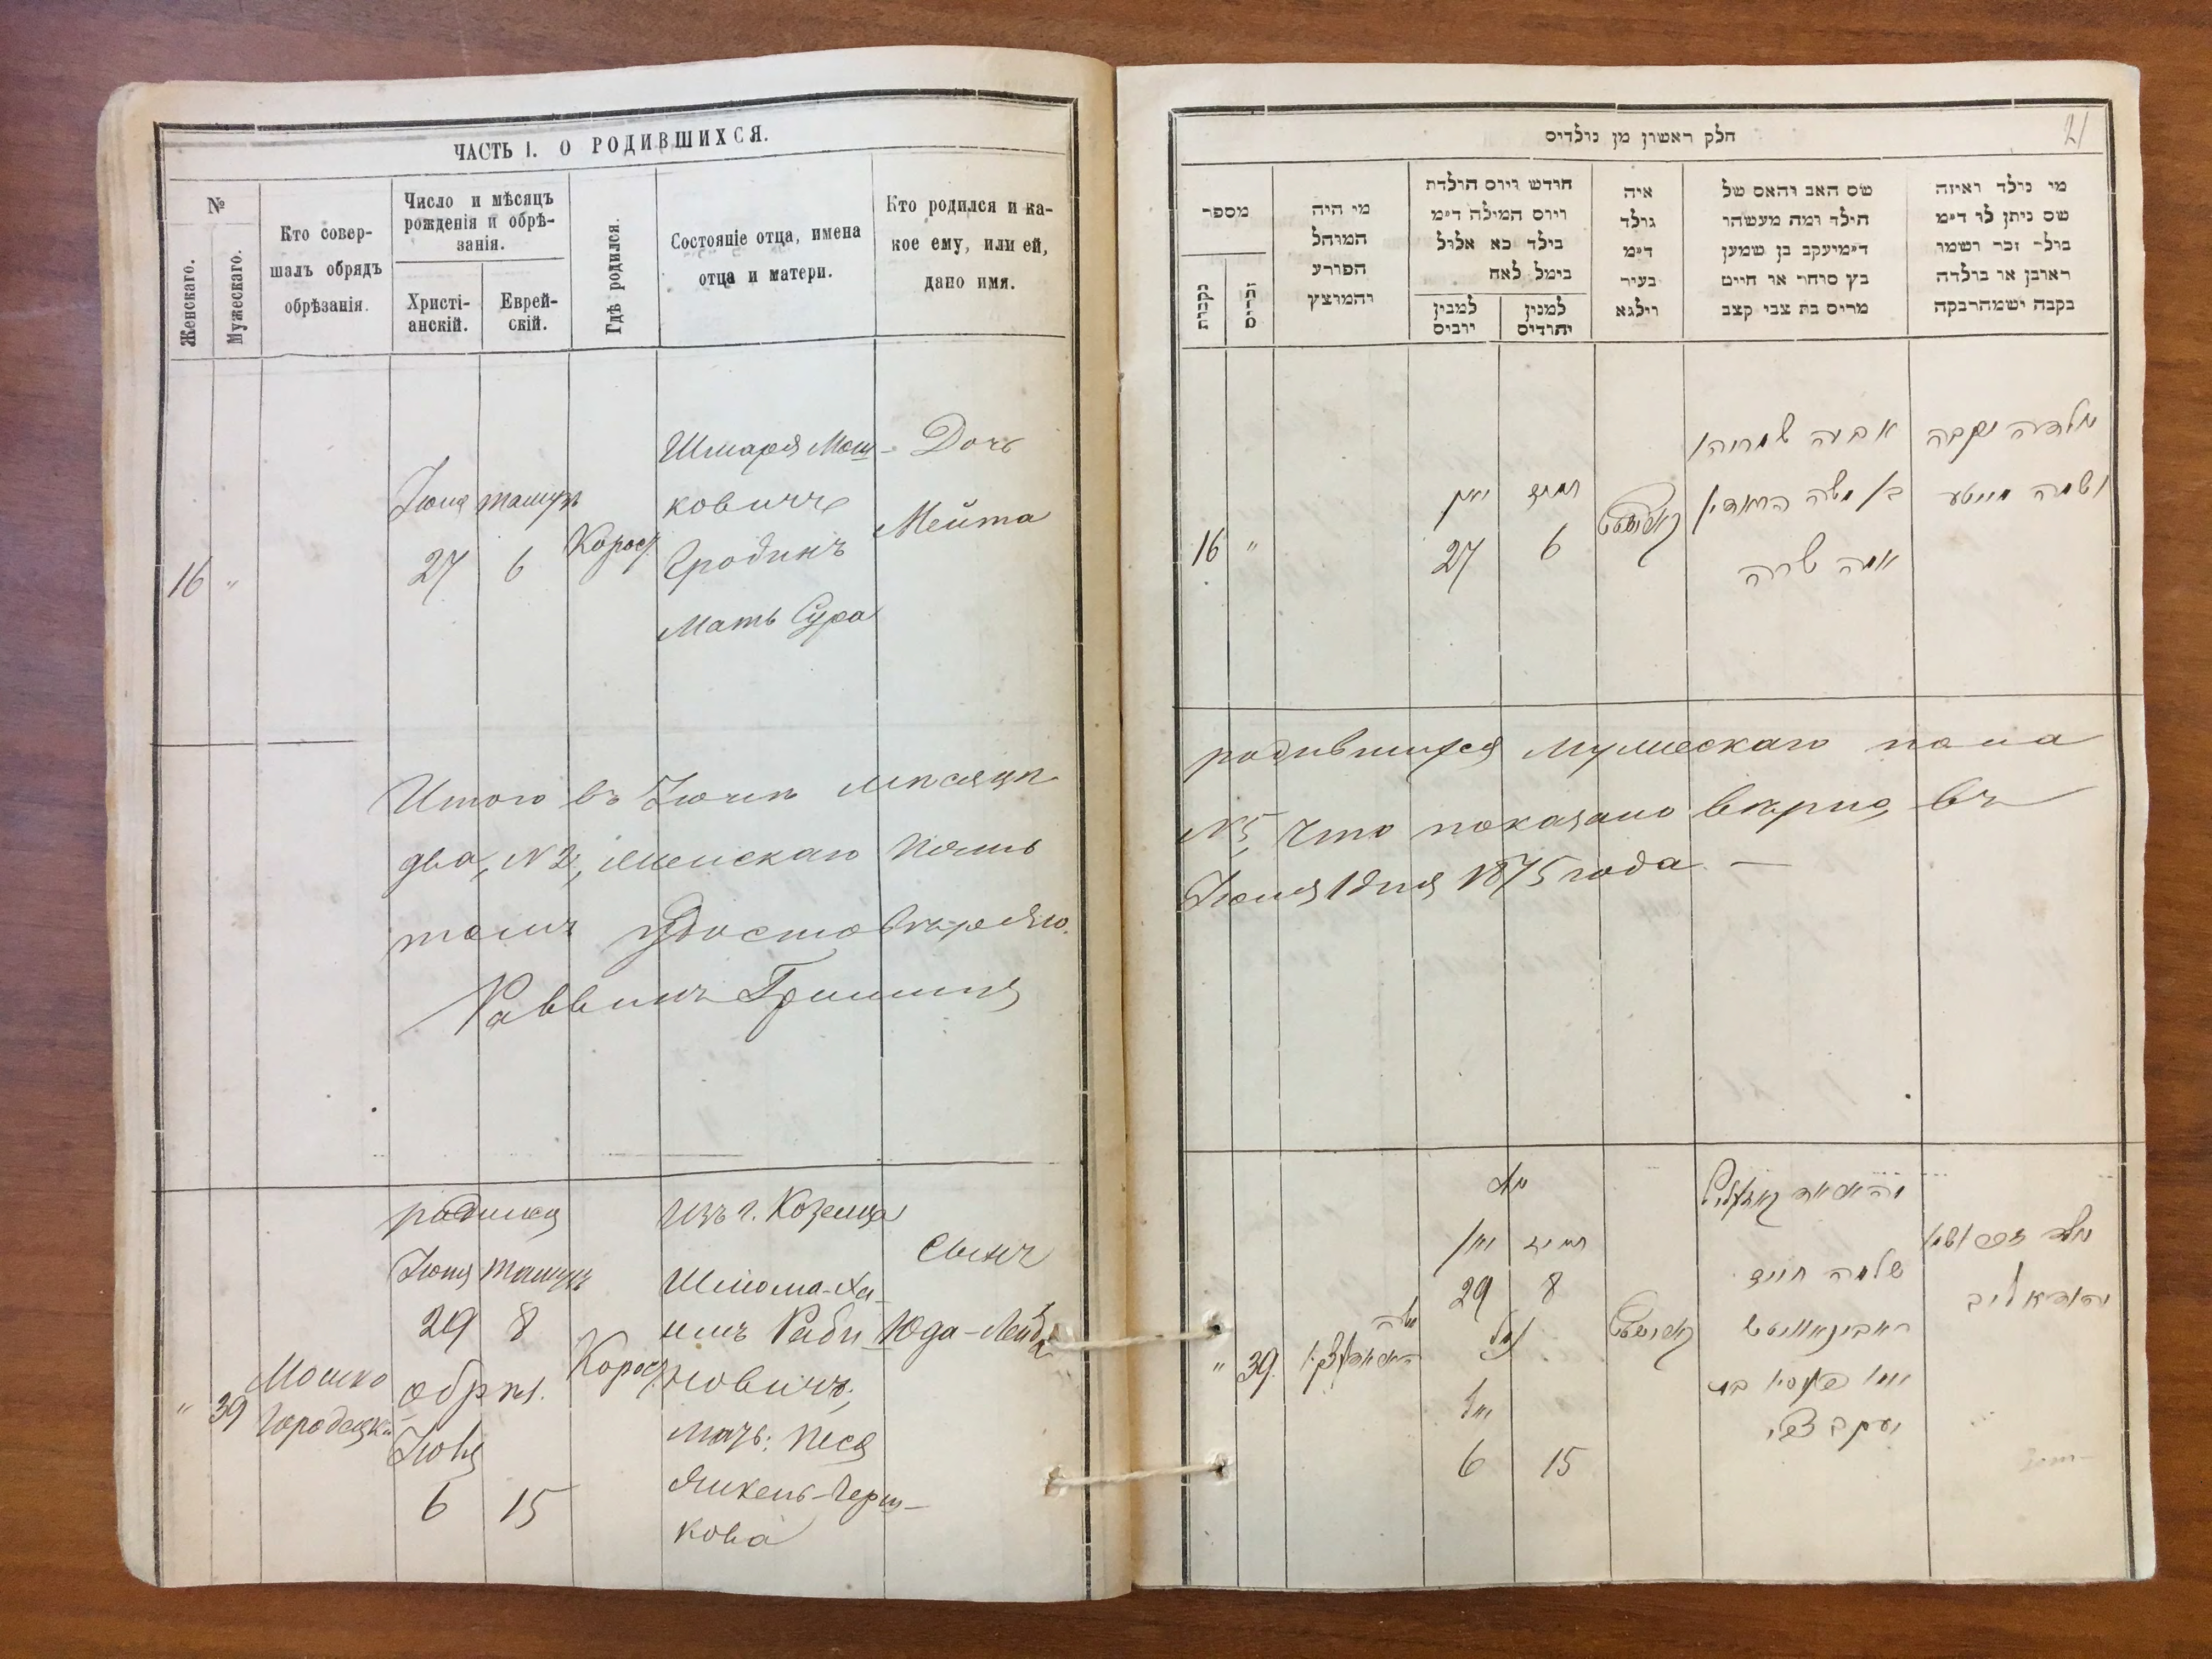 ЧАСТЬ I. О РОДИВШИХСЯ.
№
Женскаго.
Мужескаго.
Кто совер-
шалъ обрядъ
обрѣзанія.
Число и мѣсяцъ
рожденія и обрѣ-
занія.
Христі-
анскій.
Еврей-
скій.
Гдѣ родился.
Состояніе отца, имена
отца и матери.
Кто родился и ка-
кое ему, или ей,
дано имя.
16
"
Іюня
27
6
Корос.
Шмаря Мош-
ковичъ
Гродинъ
Мать Сура
Дочь
Мейта
Итого въ Іюнѣ мѣсяцѣ
два, № 2, женскаго
удостовѣряю.
Раввинъ
"
39
Мошко
родился
Іюня
29
8
обрѣз.
Іюля
6
15
Корос.
Изъ г. Козельца
Шлiома-Ха-
имъ Раби-
новичъ,
мать: Песя
Янкель-Герш-
кова
Сынъ
Юда-Лейба
חלק ראשון מן נולדים
21
מספר
נקבות
זכרים
מי היה
המוהל
הפורע
והמוצץ
חודש ויום הולדת
ויום המילה ד״מ
בילד כא אלול
בימל לאח
למנין
יוונים
למנין
יהודים
איה
נולד
ד״מ
בעיר
וילנא
שם האב והאם של
הילד ומה מעשהו
ד״מ יעקב בן שמעון
כץ סוחר או חייט
מרים בת צבי קצב
מי נולד ואיזה
שם ניתן לו ד״מ
נולד זכר ושמו
ראובן או נולדה
נקבה ושמה רבקה
16
"
יוני
27
תמוז
6
אביה שמריהו
בן משה
אמה שרה
נולדה נקבה
ושמה מייטע
родившихся мужескаго пола
№ 5, что показано вѣрно, въ
Іюля 1 дня 1875 года —
"
39
משה
יוני
29
תמוז
8
נימול
יולי
6
15
שלמה חיים
ראבינאוויטש
יעקב צבי
נולד זכר ושמו
יהודא ליב